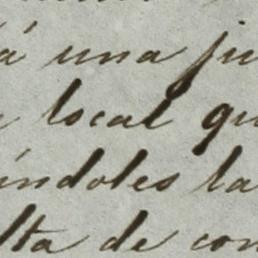 á una ju
local qu
índoles la
lta de con